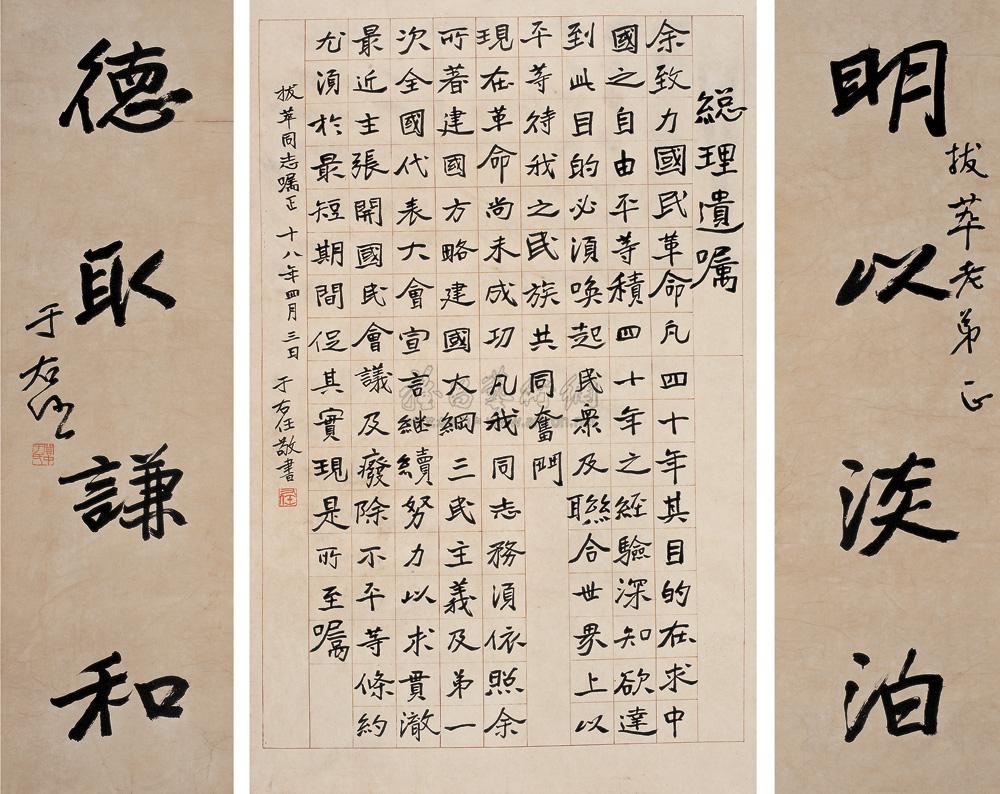 明以淡泊
拔萃老弟正
總理遺囑
余致力國民革命凡四十年其目的在求中
國之自由平等積四十年之經驗深知欲達
到此目的必須喚起民衆及聯合世界上以
平等待我之民族共同奮鬥
現在革命尚未成功凡我同志務須依照余
所著建國方略建國大綱三民主義及第一
次全國代表大會宣言繼續努力以求貫澈
最近主張開國民會議及廢除不平等條約
尤須於最短期間促其實現是所至囑
拔萃同志囑正 十八年四月三日 于右任敬書
德取謙和
于右任